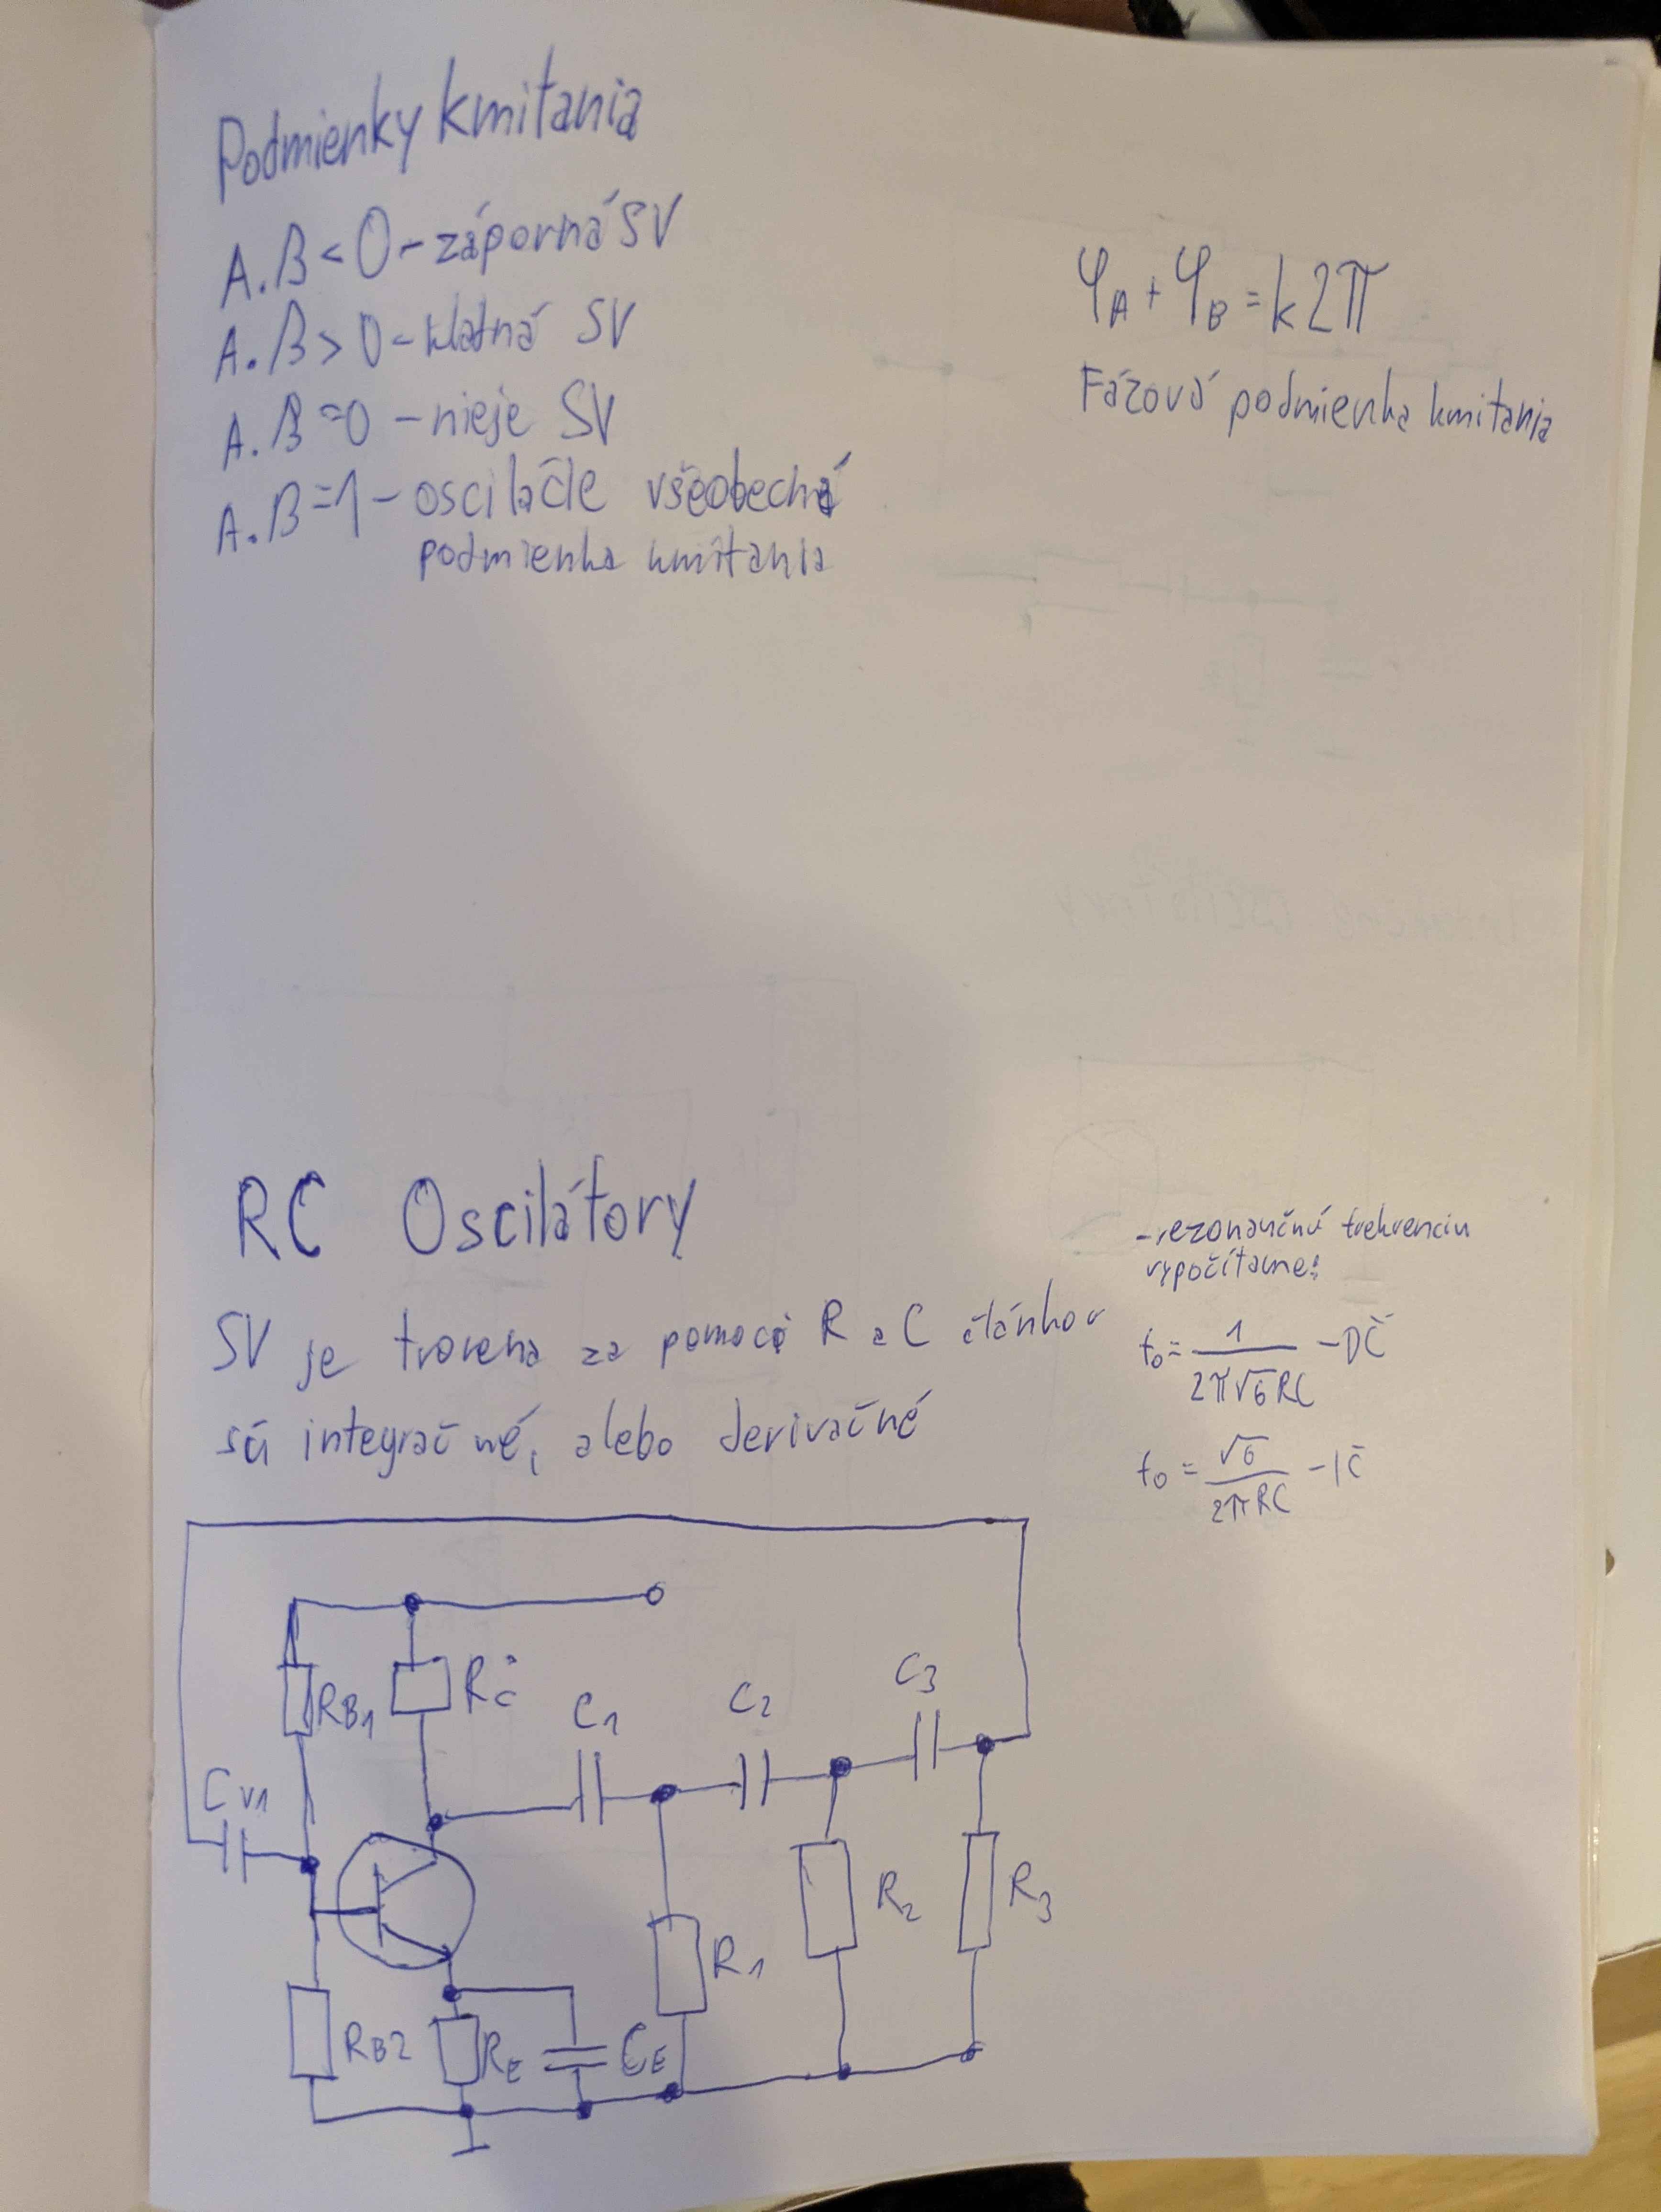 Podmienky kmitania
A.B < 0 - záporná SV
A.B > 0 - kladná SV
A.B = 0 - nieje SV
A.B = 1 - oscilačle všeobecná
podmienka kmitania
φA + φB = k2π
Fázová podmienka kmitania
RC Oscilátory
SV je tvorena za pomoci R a C článkov
sú integračné, alebo derivačné
-rezonančnú frekvenciu
vypočítame:
fo = 1/(2π√6RC) - DČ
fo = √6/(2πRC) - IČ
RB1
RC
C1
C2
C3
CV1
R1
R2
R3
RB2
RE
CE